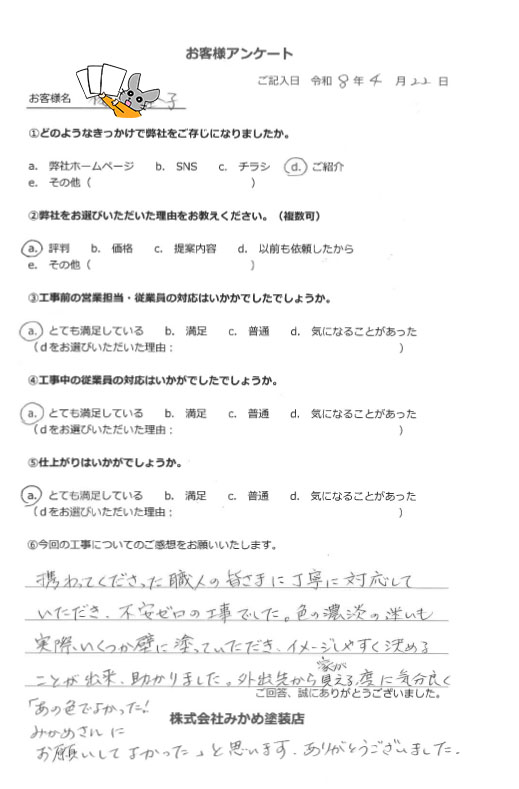 お客様アンケート
ご記入日 令和 8 年 4 月 22 日
お客様名 子
①どのようなきっかけで弊社をご存じになりましたか。
a. 弊社ホームページ b. SNS c. チラシ d. ご紹介
e. その他（ ）
②弊社をお選びいただいた理由をお教えください。（複数可）
a. 評判 b. 価格 c. 提案内容 d. 以前も依頼したから
e. その他（ ）
③工事前の営業担当・従業員の対応はいかかでしたでしょうか。
a. とても満足している b. 満足 c. 普通 d. 気になることがあった
（dをお選びいただいた理由： ）
④工事中の従業員の対応はいかがでしたでしょうか。
a. とても満足している b. 満足 c. 普通 d. 気になることがあった
（dをお選びいただいた理由： ）
⑤仕上がりはいかがでしょうか。
a. とても満足している b. 満足 c. 普通 d. 気になることがあった
（dをお選びいただいた理由： ）
⑥今回の工事についてのご感想をお願いいたします。
携わってくださった職人の皆さまに丁寧に対応して
いただき、不安ゼロの工事でした。色の濃淡の迷いも
実際、いくつか壁に塗っていただき、イメージしやすく決める
ことが出来、助かりました。外出先から家が見える度に気分良く
ご回答、誠にありがとうございました。
「あの色でよかった！
株式会社みかめ塗装店
みかめさんに
お願いしてよかった」と思います。ありがとうございました。